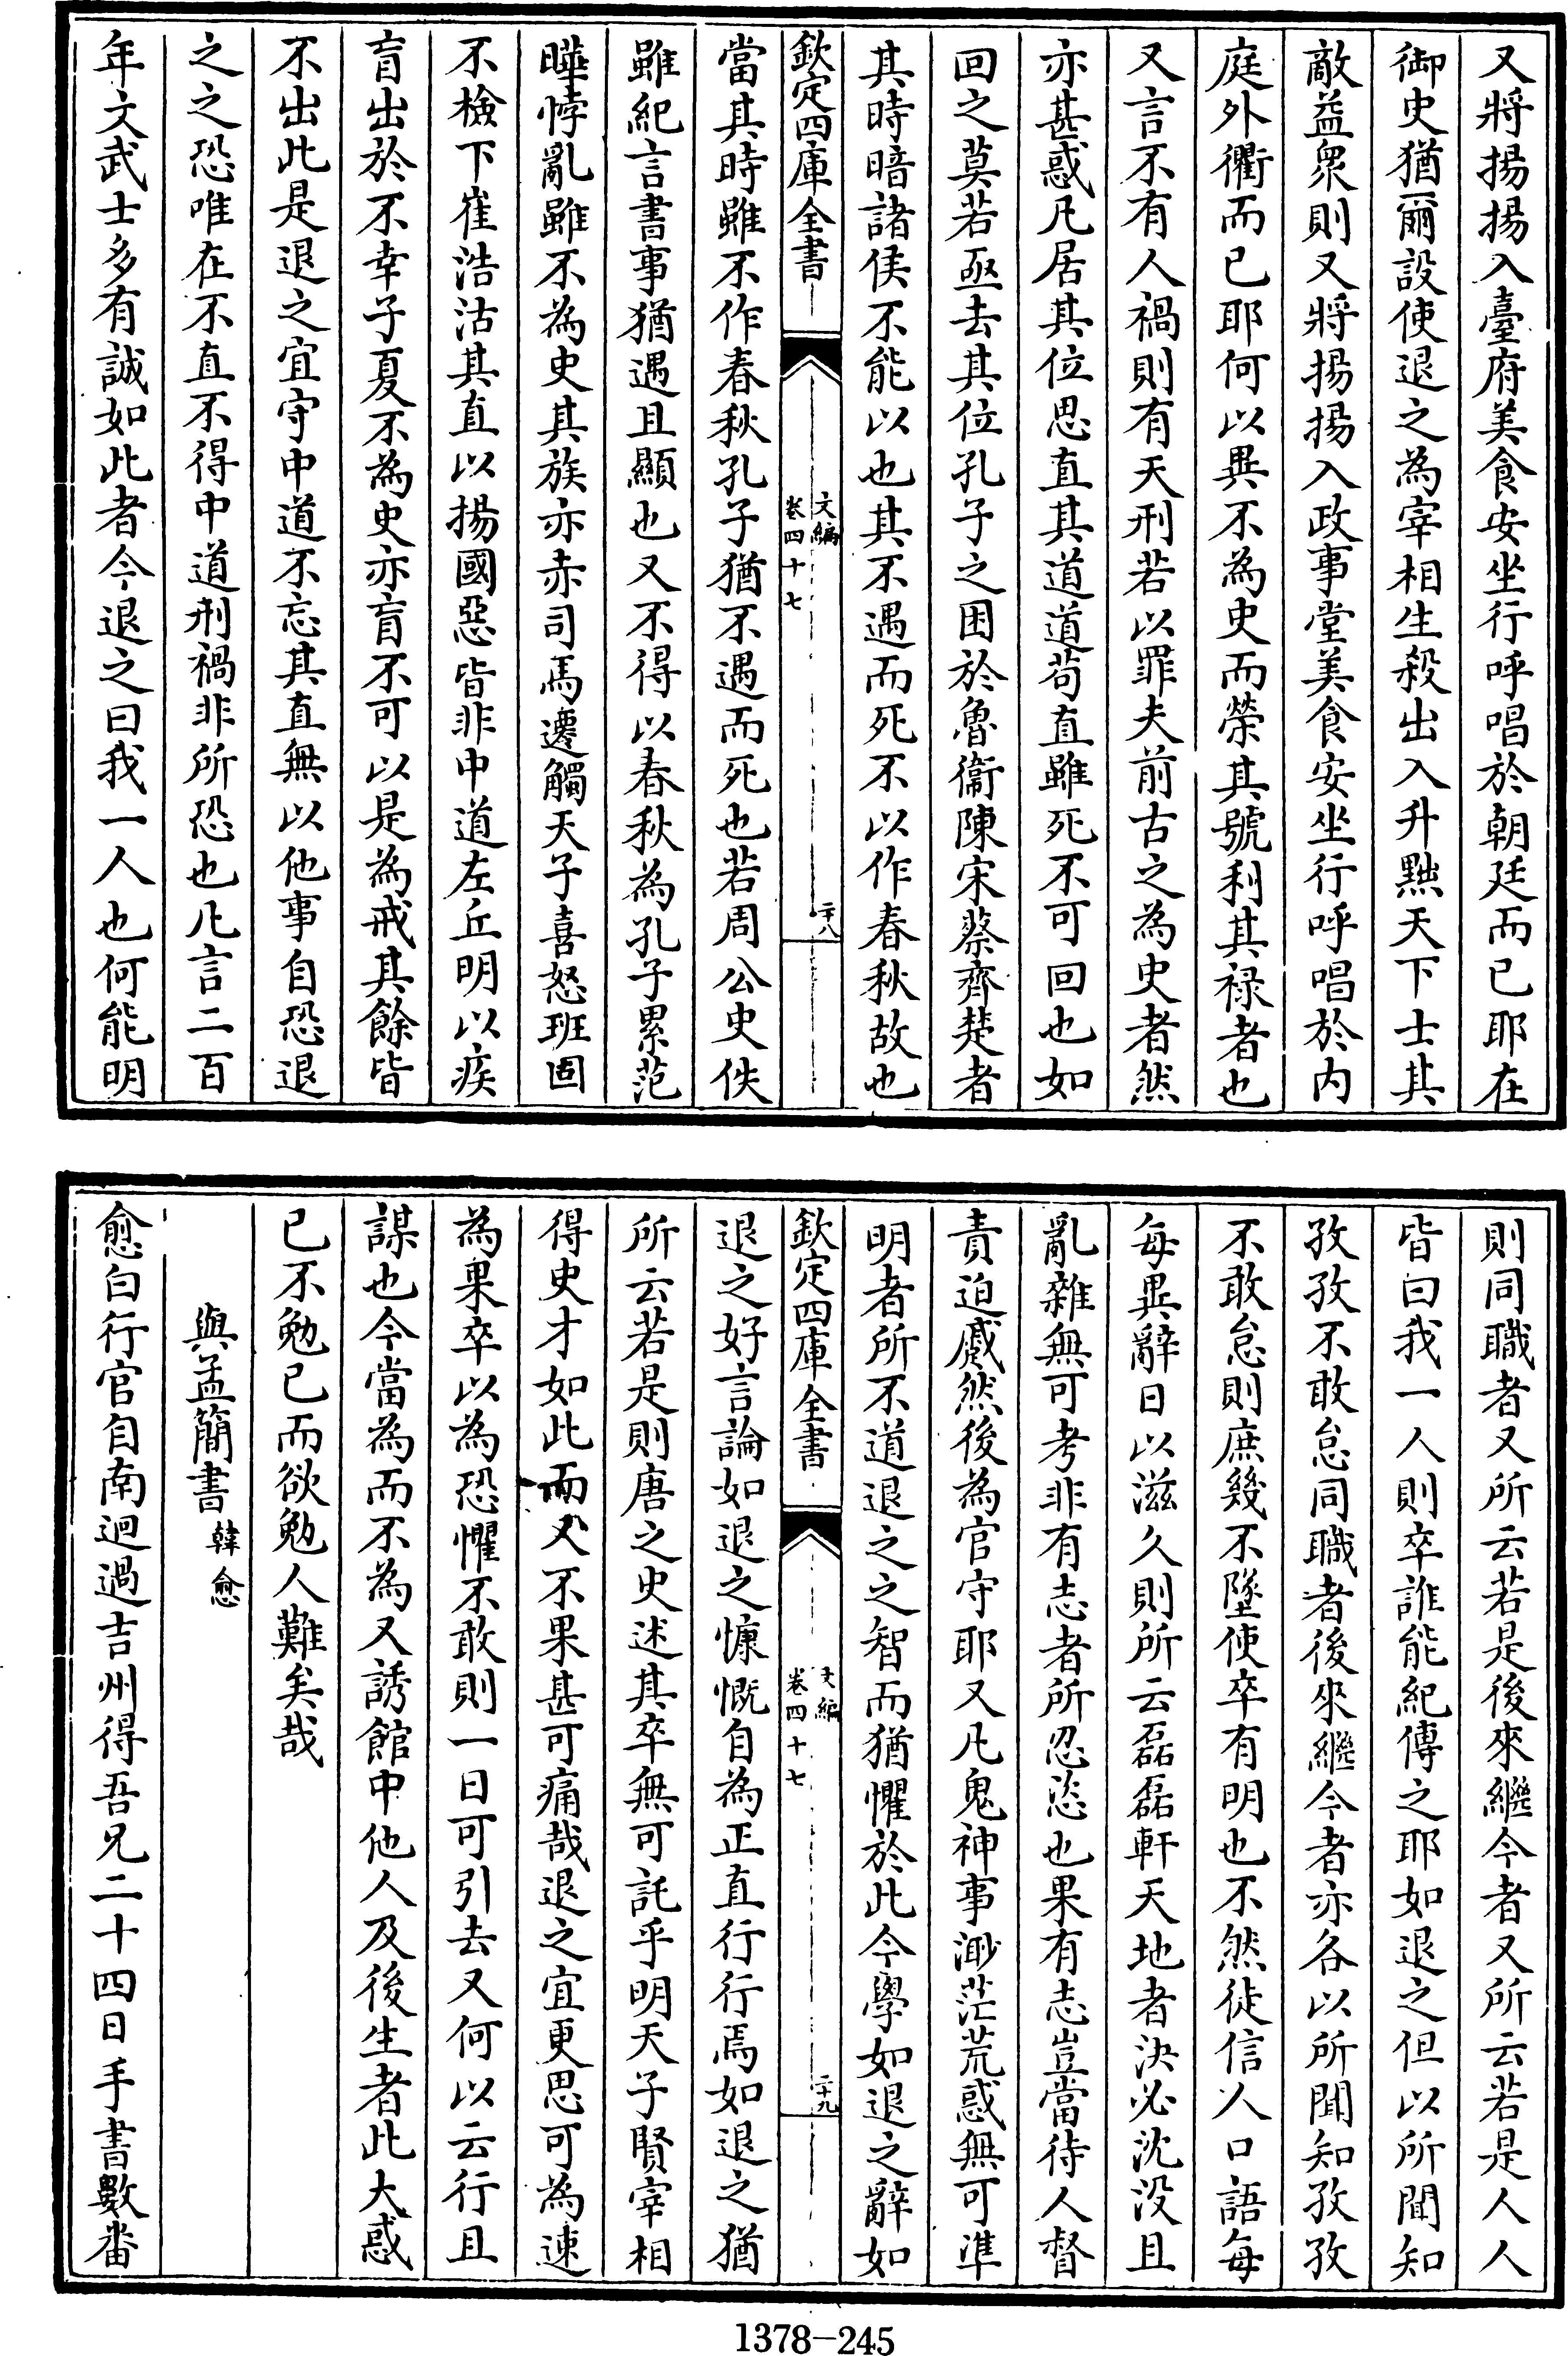 又將揚揚入臺府美食安坐行呼唱於朝廷而已耶在
御史猶爾設使退之為宰相生殺出入升黜天下士其
敵益衆則又將揚揚入政事堂美食安坐行呼唱於内
庭外衢而已耶何以異不為史而榮其號利其禄者也
又言不有人禍則有天刑若以罪夫前古之為史者然
亦甚惑凡居其位思直其道道苟直雖死不可回也如
回之莫若亟去其位孔子之困於魯衞陳宋蔡齊楚者
其時暗諸侯不能以也其不遇而死不以作春秋故也
欽定四庫全書
文編
卷四十七
二十八
當其時雖不作春秋孔子猶不遇而死也若周公史佚
雖紀言書事猶遇且顯也又不得以春秋為孔子累范
曄悖亂雖不為史其族亦赤司馬遷觸天子喜怒班固
不檢下崔浩沽其直以揚國惡皆非中道左丘明以疾
盲出於不幸子夏不為史亦盲不可以是為戒其餘皆
不出此是退之宜守中道不忘其直無以他事自恐退
之之恐唯在不直不得中道刑禍非所恐也凡言二百
年文武士多有誠如此者今退之曰我一人也何能明
則同職者又所云若是後來繼今者又所云若是人人
皆曰我一人則卒誰能紀傳之耶如退之但以所聞知
孜孜不敢怠同職者後來繼今者亦各以所聞知孜孜
不敢怠則庶幾不墜使卒有明也不然徒信人口語每
每異辭日以滋久則所云磊磊軒天地者決必沈没且
亂雜無可考非有志者所忍恣也果有志豈當待人督
責迫蹙然後為官守耶又凡鬼神事渺茫荒惑無可準
明者所不道退之之智而猶懼於此今學如退之辭如
欽定四庫全書
文編
卷四十七
二十九
退之好言論如退之慷慨自為正直行行焉如退之猶
所云若是則唐之史述其卒無可託乎明天子賢宰相
得史才如此而又不果甚可痛哉退之宜更思可為速
為果卒以為恐懼不敢則一日可引去又何以云行且
謀也今當為而不為又誘館中他人及後生者此大惑
已不勉已而欲勉人難矣哉
與孟簡書 韓愈
愈白行官自南迴過吉州得吾兄二十四日手書數番
1378-245